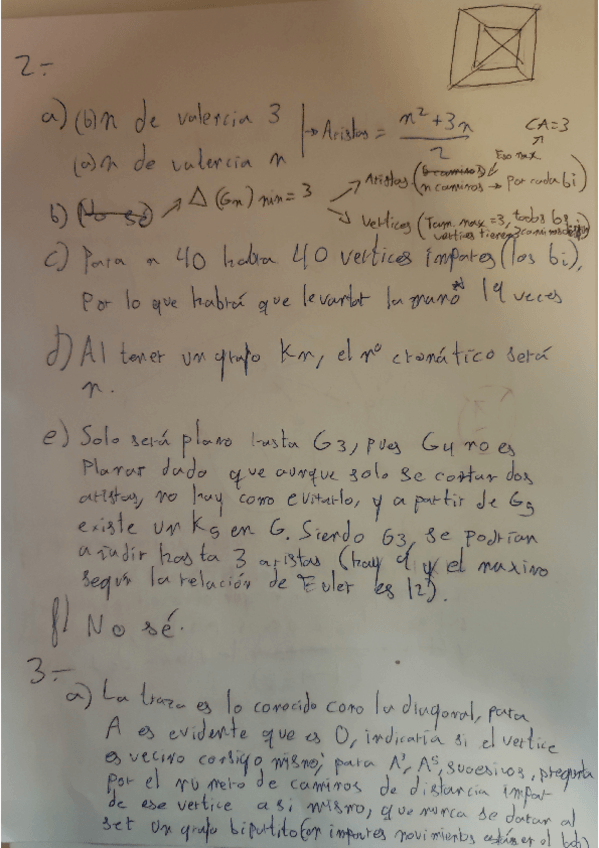 2.-
a) (b) n de valencia 3
(a) n de valencia n
→ Aristas = n² + 3n / 2
CA = 3
Eso max
b) (No sé) → Δ(Gn) min = 3
→ Aristas (n caminos → por cada bi)
→ Vertices (Tam. max = 3, todos los vertices tienen 3 caminos
c) Para n 40 habra 40 vertices impares (los bi),
por lo que habrá que levantar la mano 19 veces
d) Al tener un grafo Kn, el nº cromático será
n.
e) Solo será plano hasta G3, pues G4 no es
planar dado que aunque solo se cortan dos
aristas, no hay como evitarlo, y a partir de G5
existe un K5 en G. Siendo G3, se podrían
añadir hasta 3 aristas (hay 9 y el maximo
segun la relación de Euler es 12).
f) No sé.
3.-
a) La traza es lo conocido como la diagonal, para
A es evidente que es 0, indicaría si el vertice
es vecino consigo mismo; para A³, A⁵, sucesivos, pregunta
por el numero de caminos de distancia impar
de ese vertice a si mismo, que nunca se daran al
ser un grafo bipartito (en impares movimientos estás en el